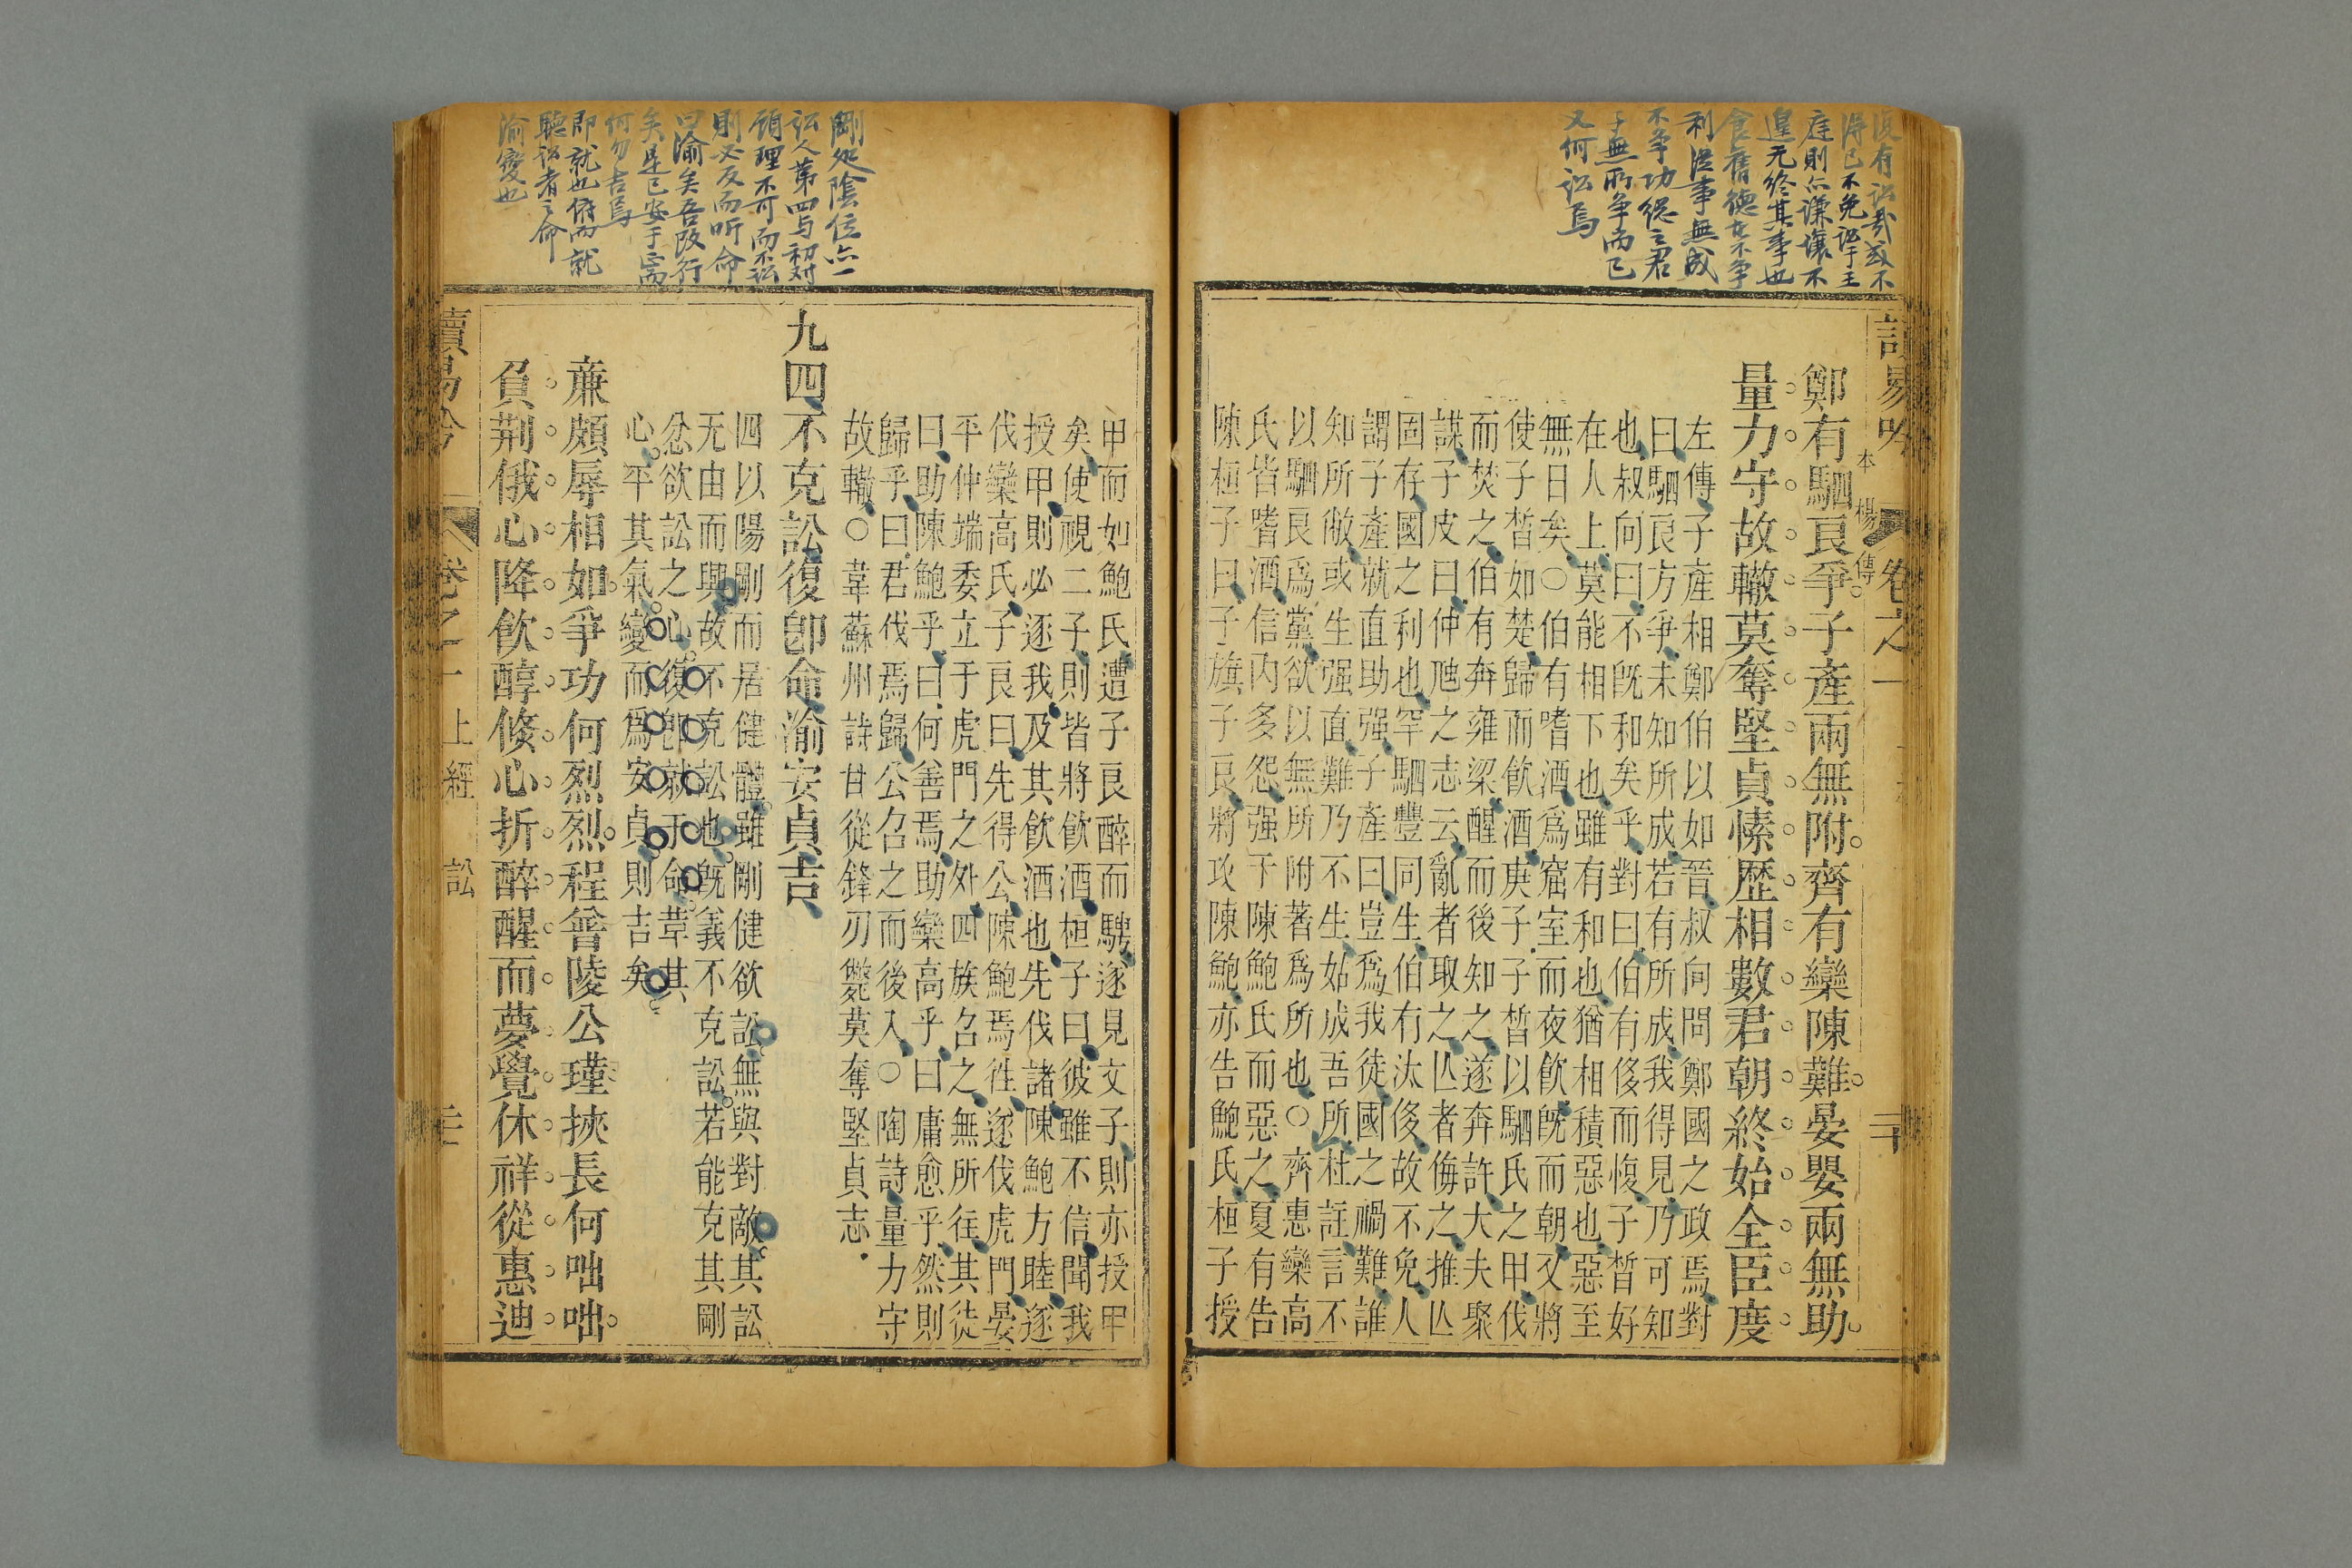 復有訟哉或不
得已不免訟于王
庭則亦謙讓不
遑无終其事也
食舊德在不爭
利從事無成
不爭功總之君
子無所爭而已
又何訟焉
卷之一
鄭有駟良爭子產兩無附齊有欒陳難晏嬰兩無助
量力守故轍莫奪堅貞愫歷相數君朝終始全臣度
左傳子產相鄭伯以如晉叔向問鄭國之政焉對
曰駟良方爭未知所成若有所成我得見乃可知
也叔向曰不既和矣乎對曰伯有侈而愎子晳好
在人上莫能相下也雖有和也猶相積惡也惡至
無日矣○伯有嗜酒爲窟室而夜飲既而朝又將
使子晳如楚歸而飲酒庚子子晳以駟氏之甲伐
而焚之伯有奔雍梁醒而後知之遂奔許大夫聚
謀子皮曰仲虺之志云亂者取之亡者侮之推亡
固存國之利也罕駟豐同生伯有汰侈故不免人
謂子產就直助强子產曰豈爲我徒國之禍難誰
知所敝或生强直難乃不生姑成吾所杜註言不
以駟良爲黨欲以無所附著爲所也○齊惠欒高
氏皆嗜酒信內多怨强于陳鮑氏而惡之夏有告
陳桓子曰子旗子良將攻陳鮑亦告鮑氏桓子授
剛処陰位亦一
訟人第四与初对
領理不可而不訟
則必反而听命
曰渝矣吾改行
矣是已安于正而
何勿吉焉
即就也俯而就
聽訟者之命
渝變也
甲而如鮑氏遭子良醉而騁遂見文子則亦授甲
矣使視二子則皆將飲酒桓子曰彼雖不信聞我
授甲則必逐我及其飲酒也先伐諸陳鮑方睦遂
伐欒高氏子良曰先得公陳鮑焉往遂伐虎門晏
平仲端委立于虎門之外四族召之無所往其徒
曰助陳鮑乎曰何善焉助欒高乎曰庸愈乎然則
歸乎曰君伐焉歸公召之而後入○陶詩量力守
故轍○韋蘇州詩甘從鋒刃斃莫奪堅貞志
九四不克訟復卽命渝安貞吉
四以陽剛而居健體雖剛健欲訟無與對敵其訟
无由而興故不克訟也既義不克訟若能克其剛
忿欲訟之心復卽就于命革其
心平其氣變而爲安貞則吉矣
亷頗辱相如爭功何烈烈程普陵公瑾挾長何咄咄
負荆俄心降飲醇倏心折醉醒而夢覺休祥從惠迪
上經
訟